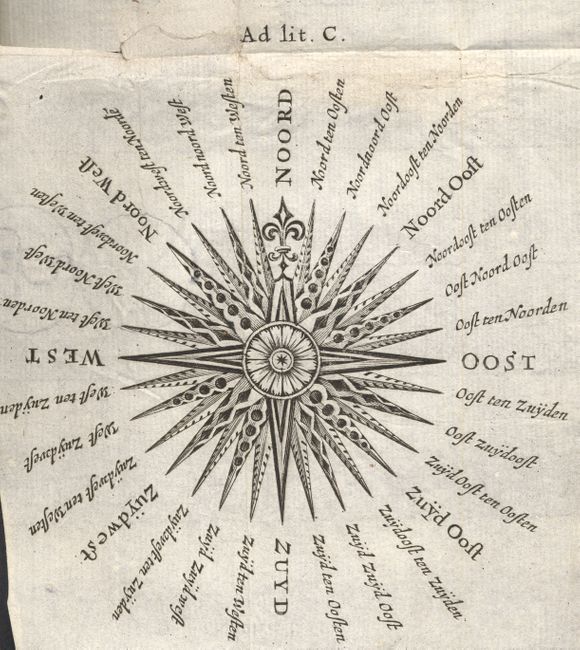 Ad lit. C.
NOORD
Noord ten Ooſten
Noordnoord Ooſt
Noordooſt ten Noorden
Noord Ooſt
Noordooſt ten Ooſten
Ooſt Noord Ooſt
Ooſt ten Noorden
OOST
Ooſt ten Zuÿden
Ooſt Zuÿdooſt
Zuÿd Ooſt ten Ooſten
Zuÿd Ooſt
Zuÿdooſt ten Zuÿden
Zuÿd Zuÿd Ooſt
Zuÿd ten Ooſten
ZUYD
Zuÿd ten Weſten
Zuÿd Zuÿdweſt
Zuÿdweſt ten Zuÿden
Zuÿdweſt
Zuÿdweſt ten Weſten
Weſt Zuÿdweſt
Weſt ten Zuÿden
WEST
Weſt ten Noorden
Weſt Noord Weſt
Noordweſt ten Weſten
Noord Weſt
Noordweſt ten Noordē
Noordnoord Weſt
Noord ten Weſten